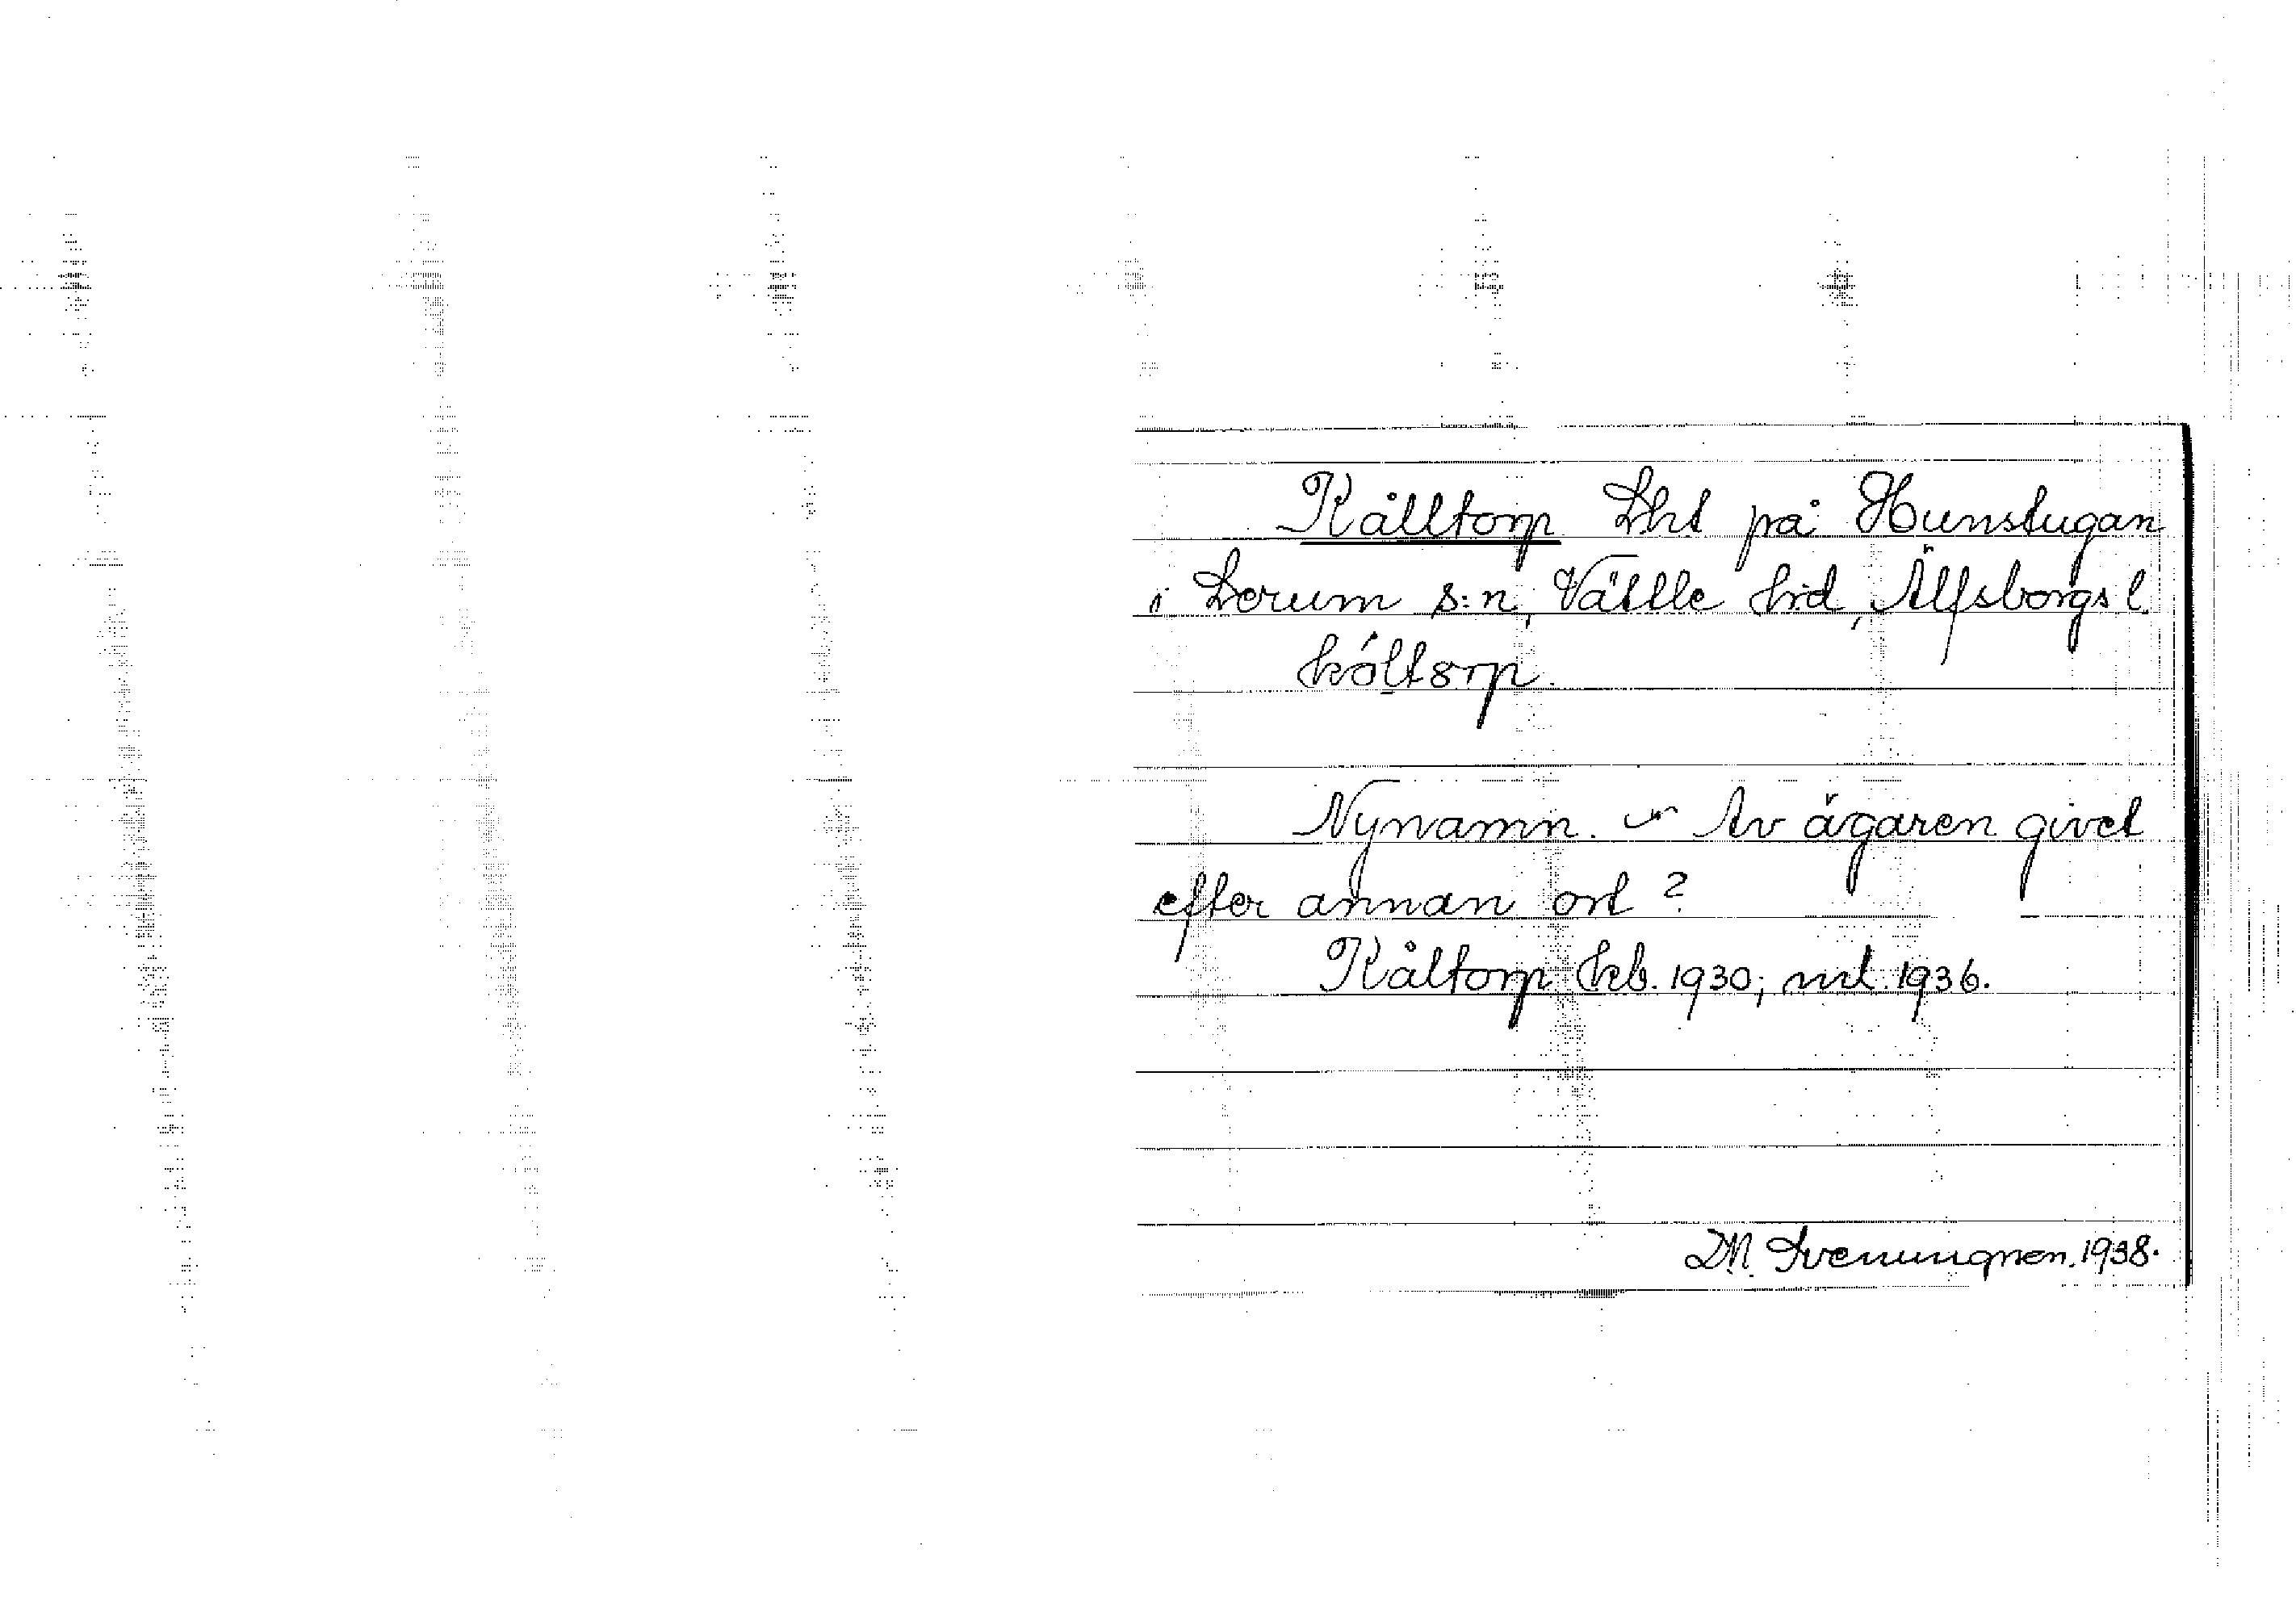 Kålltorp Lht på Hunstugan
i Lerum s:n, Vättle hd, Älfsborgs l.
kóltorp.
Nynamn. – Av ägaren givet
efter annan ort?
Kåltorp kb. 1930; ml. 1936.
D.N. Svenungsson. 1938.